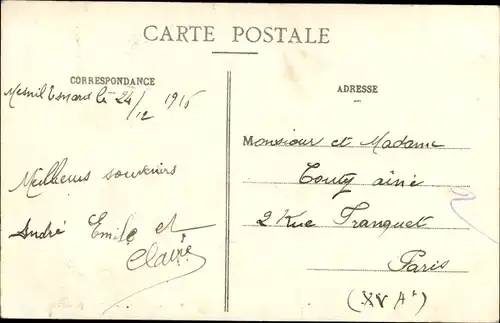 CARTE POSTALE
CORRESPONDANCE
ADRESSE
Mesnil Esnard le 24/12 1916
Monsieur et Madame
Touty ainé
Meilleurs souvenirs
2 Rue Franquet
André Emile et
Claire
Paris
(XV Ar)